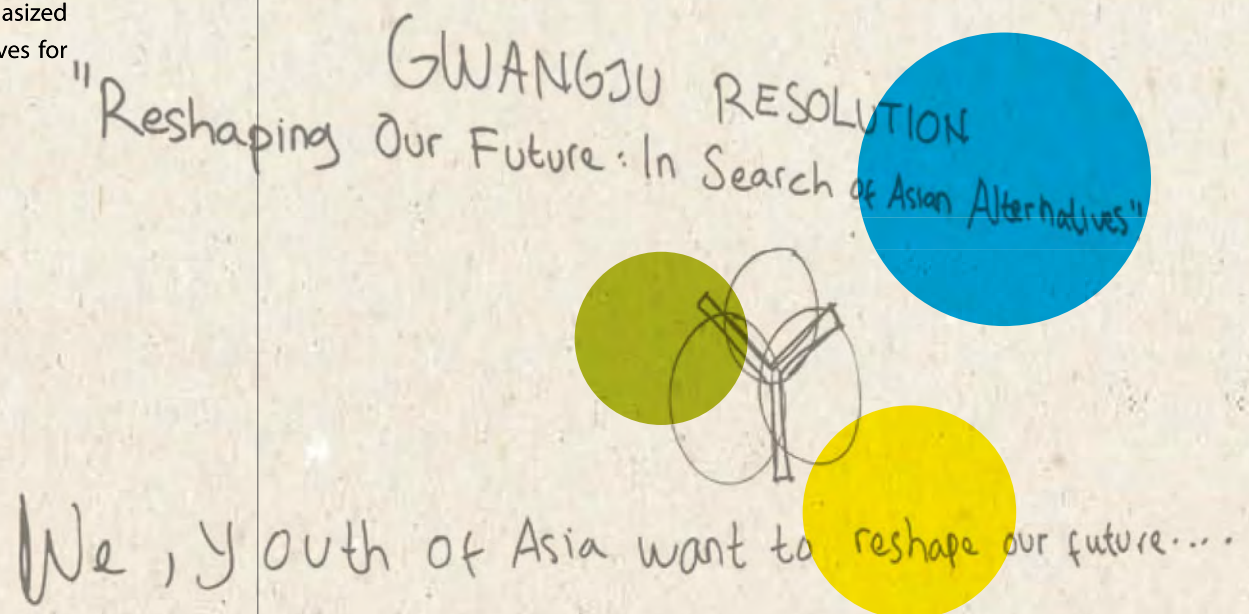 asized
ves for
GWANGJU RESOLUTION
"Reshaping Our Future: In Search of Asian Alternatives"
We, youth of Asia want to reshape our future....